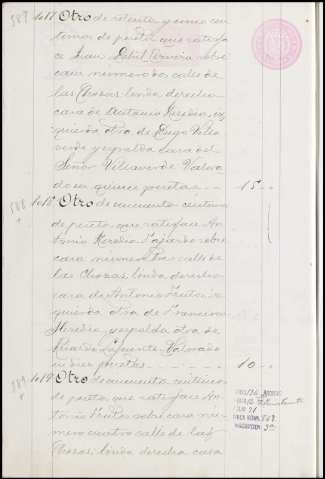 587 1017 Otro de setenta y cinco cen
timos de peseta que satisfa
ce Juan sobre
casa numero dos calle de
las Chozas, linda derecha
casa de Antonio Heredia, iz
quierda otra de
y espalda casa del
Señor Villaverde Valora
do en quince pesetas. 15
588 1018 Otro de cincuenta centimos
de peseta que satisface An
tonio Heredia Fajardo sobre
casa numero tres calle de
las Chozas, linda derecha
casa de Antonio Prieto, iz
quierda otra de Francisco
Heredia, y espalda otra de
Ricardo Lafuente, Valorado
en diez pesetas. 10
589 1019 Otro de cincuenta centimos
de peseta que satisface An
tonio Prieto sobre casa nu
mero cuatro calle de las
Chozas, linda derecha casa